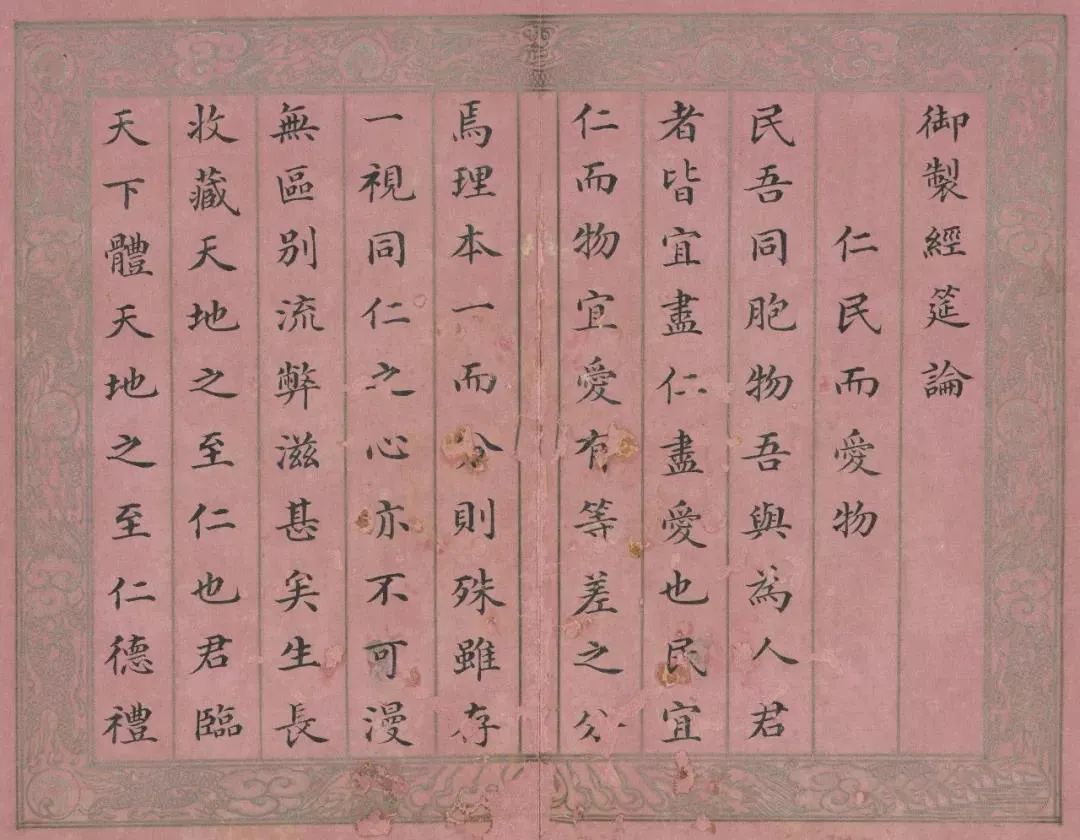 御製經筵論
仁民而愛物
民吾同胞物吾與為人君
者皆宜盡仁盡愛也民宜
仁而物宜愛有等差之分
焉理本一而分則殊雖存
一視同仁之心亦不可漫
無區别流弊滋甚矣生長
收藏天地之至仁也君臨
天下體天地之至仁德禮